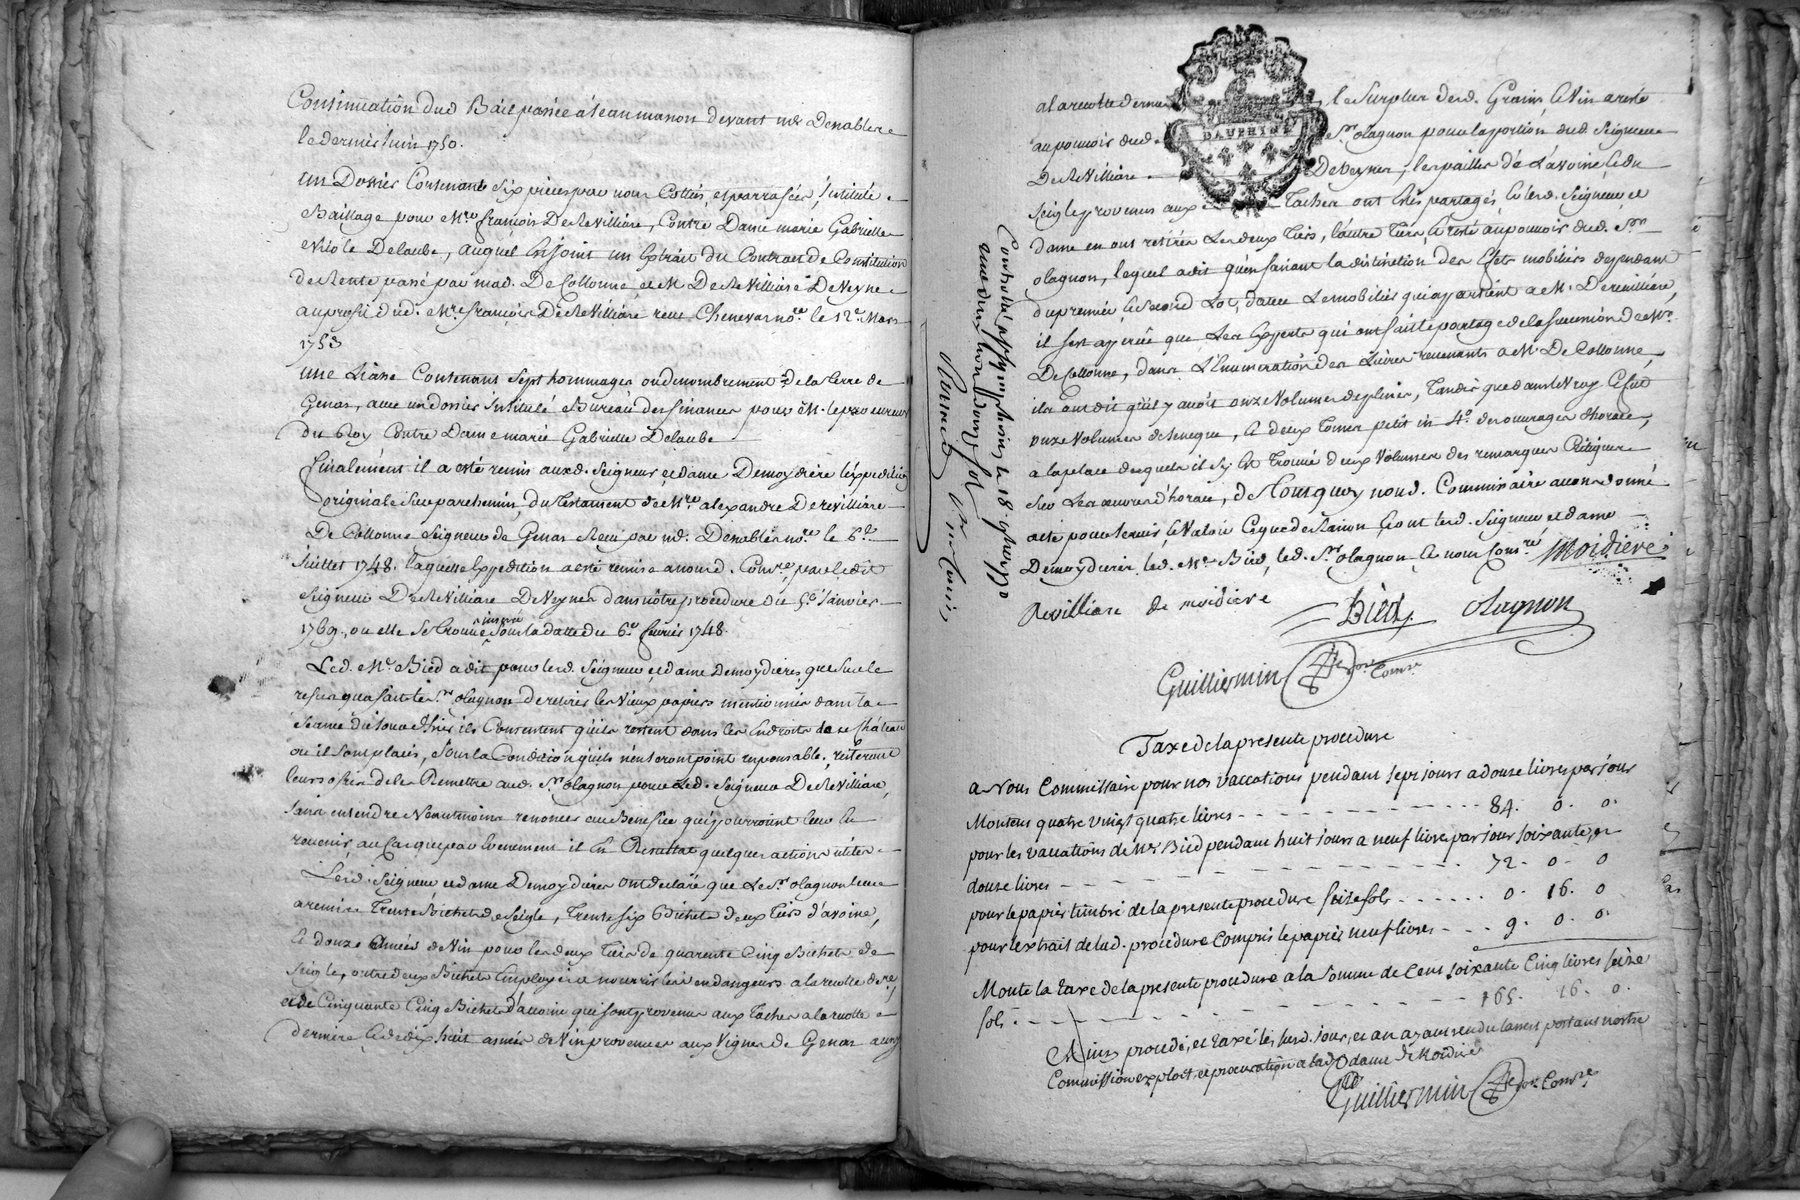 Continuation dud. Bail passée a Jean manon devant me. Denablere
le dernier Juin 1750.
un Dossier Contenant Six pieces par nous Cottés, et parrafées, Intitulé
Baillage pour Mre. françois De Revilliare, Contre Dame marie Gabrielle
Delaube, auquel Est Joint un Extrait du Contract de Constitution
de Rente passé par mad. De Collonne, et M. De Revilliare De Veyne
au profit dud. Mre. françois De Revilliare receu Chenevas nore. le 12e. Mars
1753
une Liasse Contenant Sept hommages ou denombrement de la terre de
Genas, avec un dossier Intitulé Bureau des finances pour M. le procureur
du Roy Contre Dame marie Gabrielle Delaube
finalement il a esté remis auxd. Seigneur et dame Demoydiere l'expedition
originale Sur parchemin, du testament de Mre. alexandre De revilliare
De Collonne Seigneur de Genas Receu par me. Denabler nore. le 6e.
Juillet 1748. laquelle Expedition a esté remise a nousd. Comre. par ledit
Seigneur De Revilliare De Veynes dans nôtre procedure du 5e. Janvier
1769., ou elle Se trouve inseré Sous la datte du 6e. fevrier 1748.
Led. Me. Bied a dit pour lesd. Seigneur et dame Demoydieres, que Sur le
refus qu'a fait le Sr. olagnon de retirer les Vieux papiers mentionnés dans la
Séance du Jour d'hier ils Consentent qu'ils restent dans les Endroits de ce Château
ou il Sont placés, Sous la Condition qu'ils n'en Seront point responsable, reiterent
leurs offres de les Remettre aud. Sr. olagnon pour Led. Seigneur De Revilliare,
Sans entendre Neantmoins renoncer au Benefice qui pourroient leur En
revenir au Cas que par Evenement il En Resultat quelques actions utiles
Lesd. Seigneur et dame Demoydieres ont declaré que Le Sr. olagnon leur
a remis Trente Bichets de Seigle, Trente Six Bichets deux tiers d'avoine,
Et douze Anées de Vin pour les deux tiers de quarente Cinq Bichets de
Seigle, outre deux Bichets Employés a nourrir les Vendangeurs a la recolte dre.,
et de Cinquante Cinq Bichets d'avoine qui sont provenus aux taches a la recolte
derniere, Et de dix huit anées de Vin provenues aux Vignes de Genas aussy
a la recolte derniere
DAUPHINÉ
, le Surplus desd. Grains, et Vin a resté
au pouvoir dud.
Sr. olagnon pour la portion dud. Seigneur
De Revilliare
De Veynes, les pailles de L'avoine, Et du
Seigle provenus aux
Taches ont Etés partagés, Et lesd. Seigneur et
dame en ont retirés Les deux tiers, l'autre tiers, a resté au pouvoir dud. Sr.
olagnon, lequel a dit qu'en faisant la distinction des Effets mobiliers dependant
du premier, Et Second Lot, d'avec Le mobilier qui appartient a M. De revilliére,
il s'est apperçûe que Les Experts qui ont fait le partage de la Succession de Mr.
De Collonne, dans L'Enumeration des Livres revenants a M. De Collonne,
ils ont dit qu'il y avoit onze Volumes de plines, tandis que dans le Vray C'est
onze Volumes de Seneque, Et deux tomes petit in 4o. des ouvrages d'horace,
a la place desquels il S'y Est trouvé deux Volumes des remarques Critiques
Sur Les œuvres d'horace, de Tout quoy nousd. Commissaire avons donné
acte pour Servir, Et Valoir Ce que de Raison, Et ont lesd. Seigneur et dame
Demoydieres, led. Me. Bied, led. Sr. olagnon Et nous Comre. Moidiere
Revilliare de moidiere Bied Olagnon
Guilliermin Comre
Controllé
Taxe de la presente procedure
a Nous Commissaire pour nos vaccations pendant sept jours a douze livres par jour
Montent quatre vingt quatre livres - - - 84. 0. 0.
pour les vaccations de Me Bied pendant huit jours a neuf livre par jour soixante, et
douze livres - - - 72. 0. 0
pour le papier timbré de la presente procedure seize sols - - - 0. 16. 0
pour l'extrait de lad. procedure compris le papier neuf livres - - - 9. 0. 0.
Monte la taxe de la presente procedure a la somme de Cent soixante Cinq livres seize
sols - - - 165. 16. 0.
Ainsy procedé, et taxé les susd. jours, et an ayant rendu lasses portant nostre
Commission exploit, et procuration a lad. dame de Moidiere
Guilliermin Comre